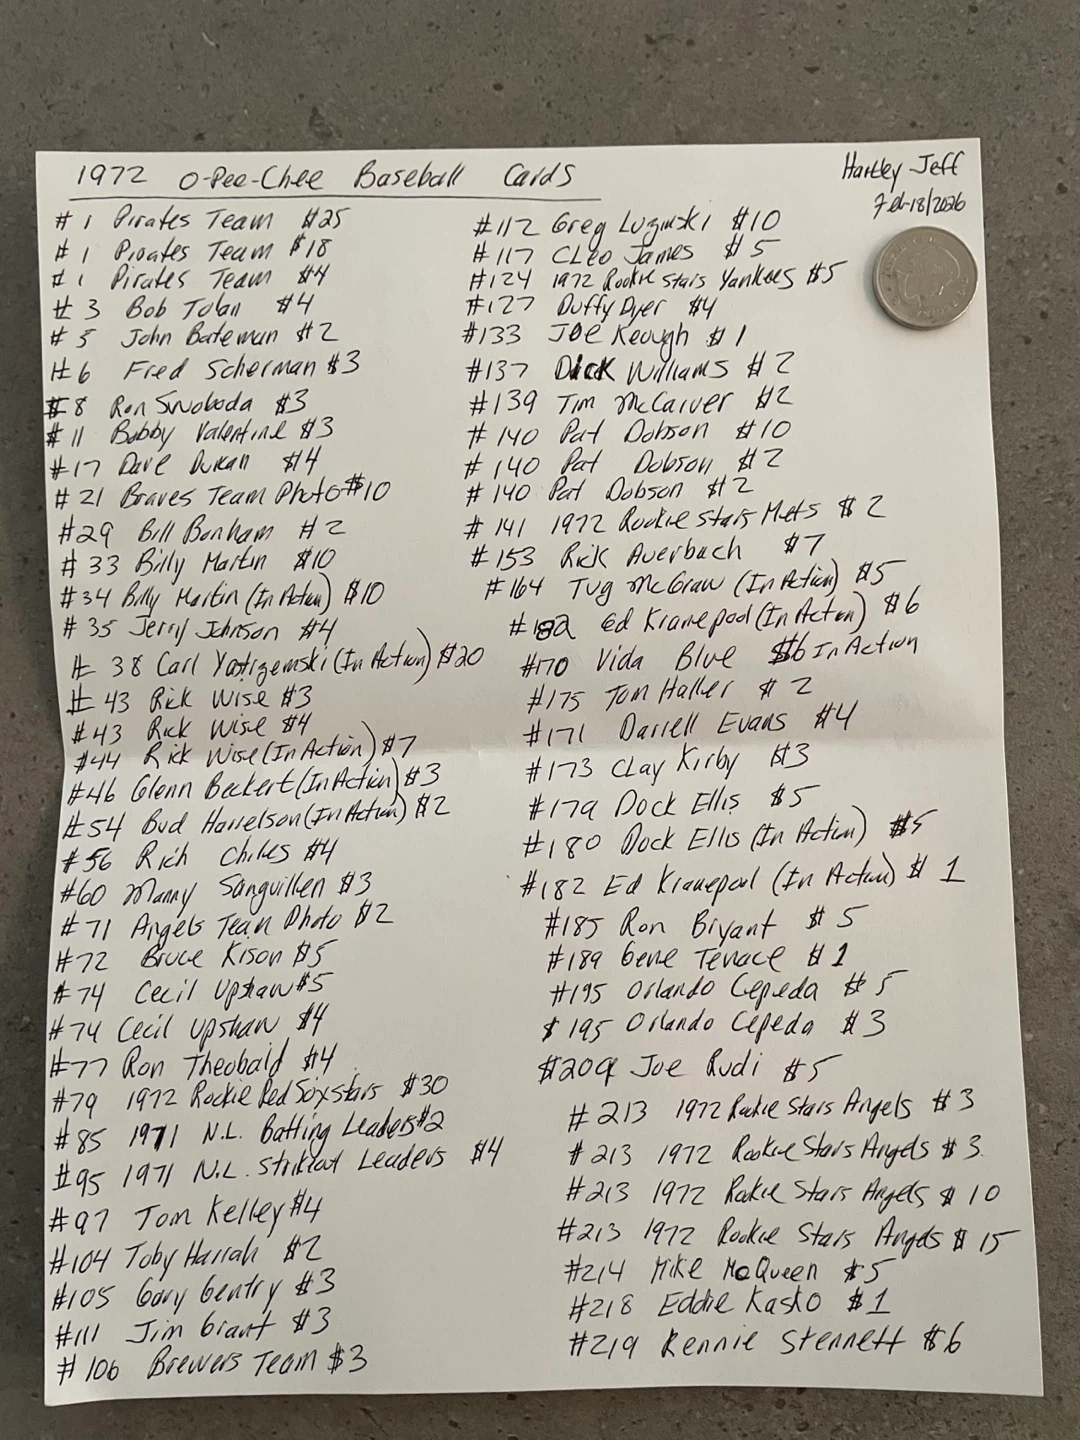 1972 O-Pee-Chee Baseball Cards
Hartley Jeff
Feb-18/2026
#1 Pirates Team $25
#1 Pirates Team $18
#1 Pirates Team $4
#3 Bob Tolan $4
#5 John Bateman $2
#6 Fred Scherman $3
#8 Ron Swoboda $3
#11 Bobby Valentine $3
#17 Dave Duncan $4
#21 Braves Team Photo $10
#29 Bill Bonham $2
#33 Billy Martin $10
#34 Billy Martin (In Action) $10
#35 Jerry Johnson $4
#38 Carl Yastrzemski (In Action) $20
#43 Rick Wise $3
#43 Rick Wise $4
#44 Rick Wise (In Action) $7
#46 Glenn Beckert (In Action) $3
#54 Bud Harrelson (In Action) $2
#56 Rich Chiles $4
#60 Manny Sanguillen $3
#71 Angels Team Photo $2
#72 Bruce Kison $5
#74 Cecil Upshaw $5
#74 Cecil Upshaw $4
#77 Ron Theobald $4
#79 1972 Rookie Red Sox stars $30
#85 1971 N.L. Batting Leaders $2
#95 1971 N.L. Strikeout Leaders $4
#97 Tom Kelley $4
#104 Toby Harrah $2
#105 Gary Gentry $3
#111 Jim Grant $3
#106 Brewers Team $3
#112 Greg Luzinski $10
#117 CLeo James $5
#124 1972 Rookie Stars Yankees $5
#127 Duffy Dyer $4
#133 Joe Keough $1
#137 Dick Williams $2
#139 Tim McCarver $2
#140 Pat Dobson $10
#140 Pat Dobson $2
#140 Pat Dobson $2
#141 1972 Rookie Stars Mets $2
#153 Rick Auerbach $7
#164 Tug McGraw (In Action) $5
#182 Ed Kranepool (In Action) $6
#170 Vida Blue $6 In Action
#175 Tom Haller $2
#171 Darrell Evans $4
#173 CLay Kirby $3
#179 Dock Ellis $5
#180 Dock Ellis (In Action) $5
#182 Ed Kranepool (In Action) $1
#185 Ron Bryant $5
#189 Gene Tenace $1
#195 Orlando Cepeda $5
$195 Orlando Cepeda $3
$209 Joe Rudi $5
#213 1972 Rookie Stars Angels $3
#213 1972 Rookie Stars Angels $3
#213 1972 Rookie Stars Angels $10
#213 1972 Rookie Stars Angels $15
#214 Mike McQueen $5
#218 Eddie Kasko $1
#219 Rennie Stennett $6